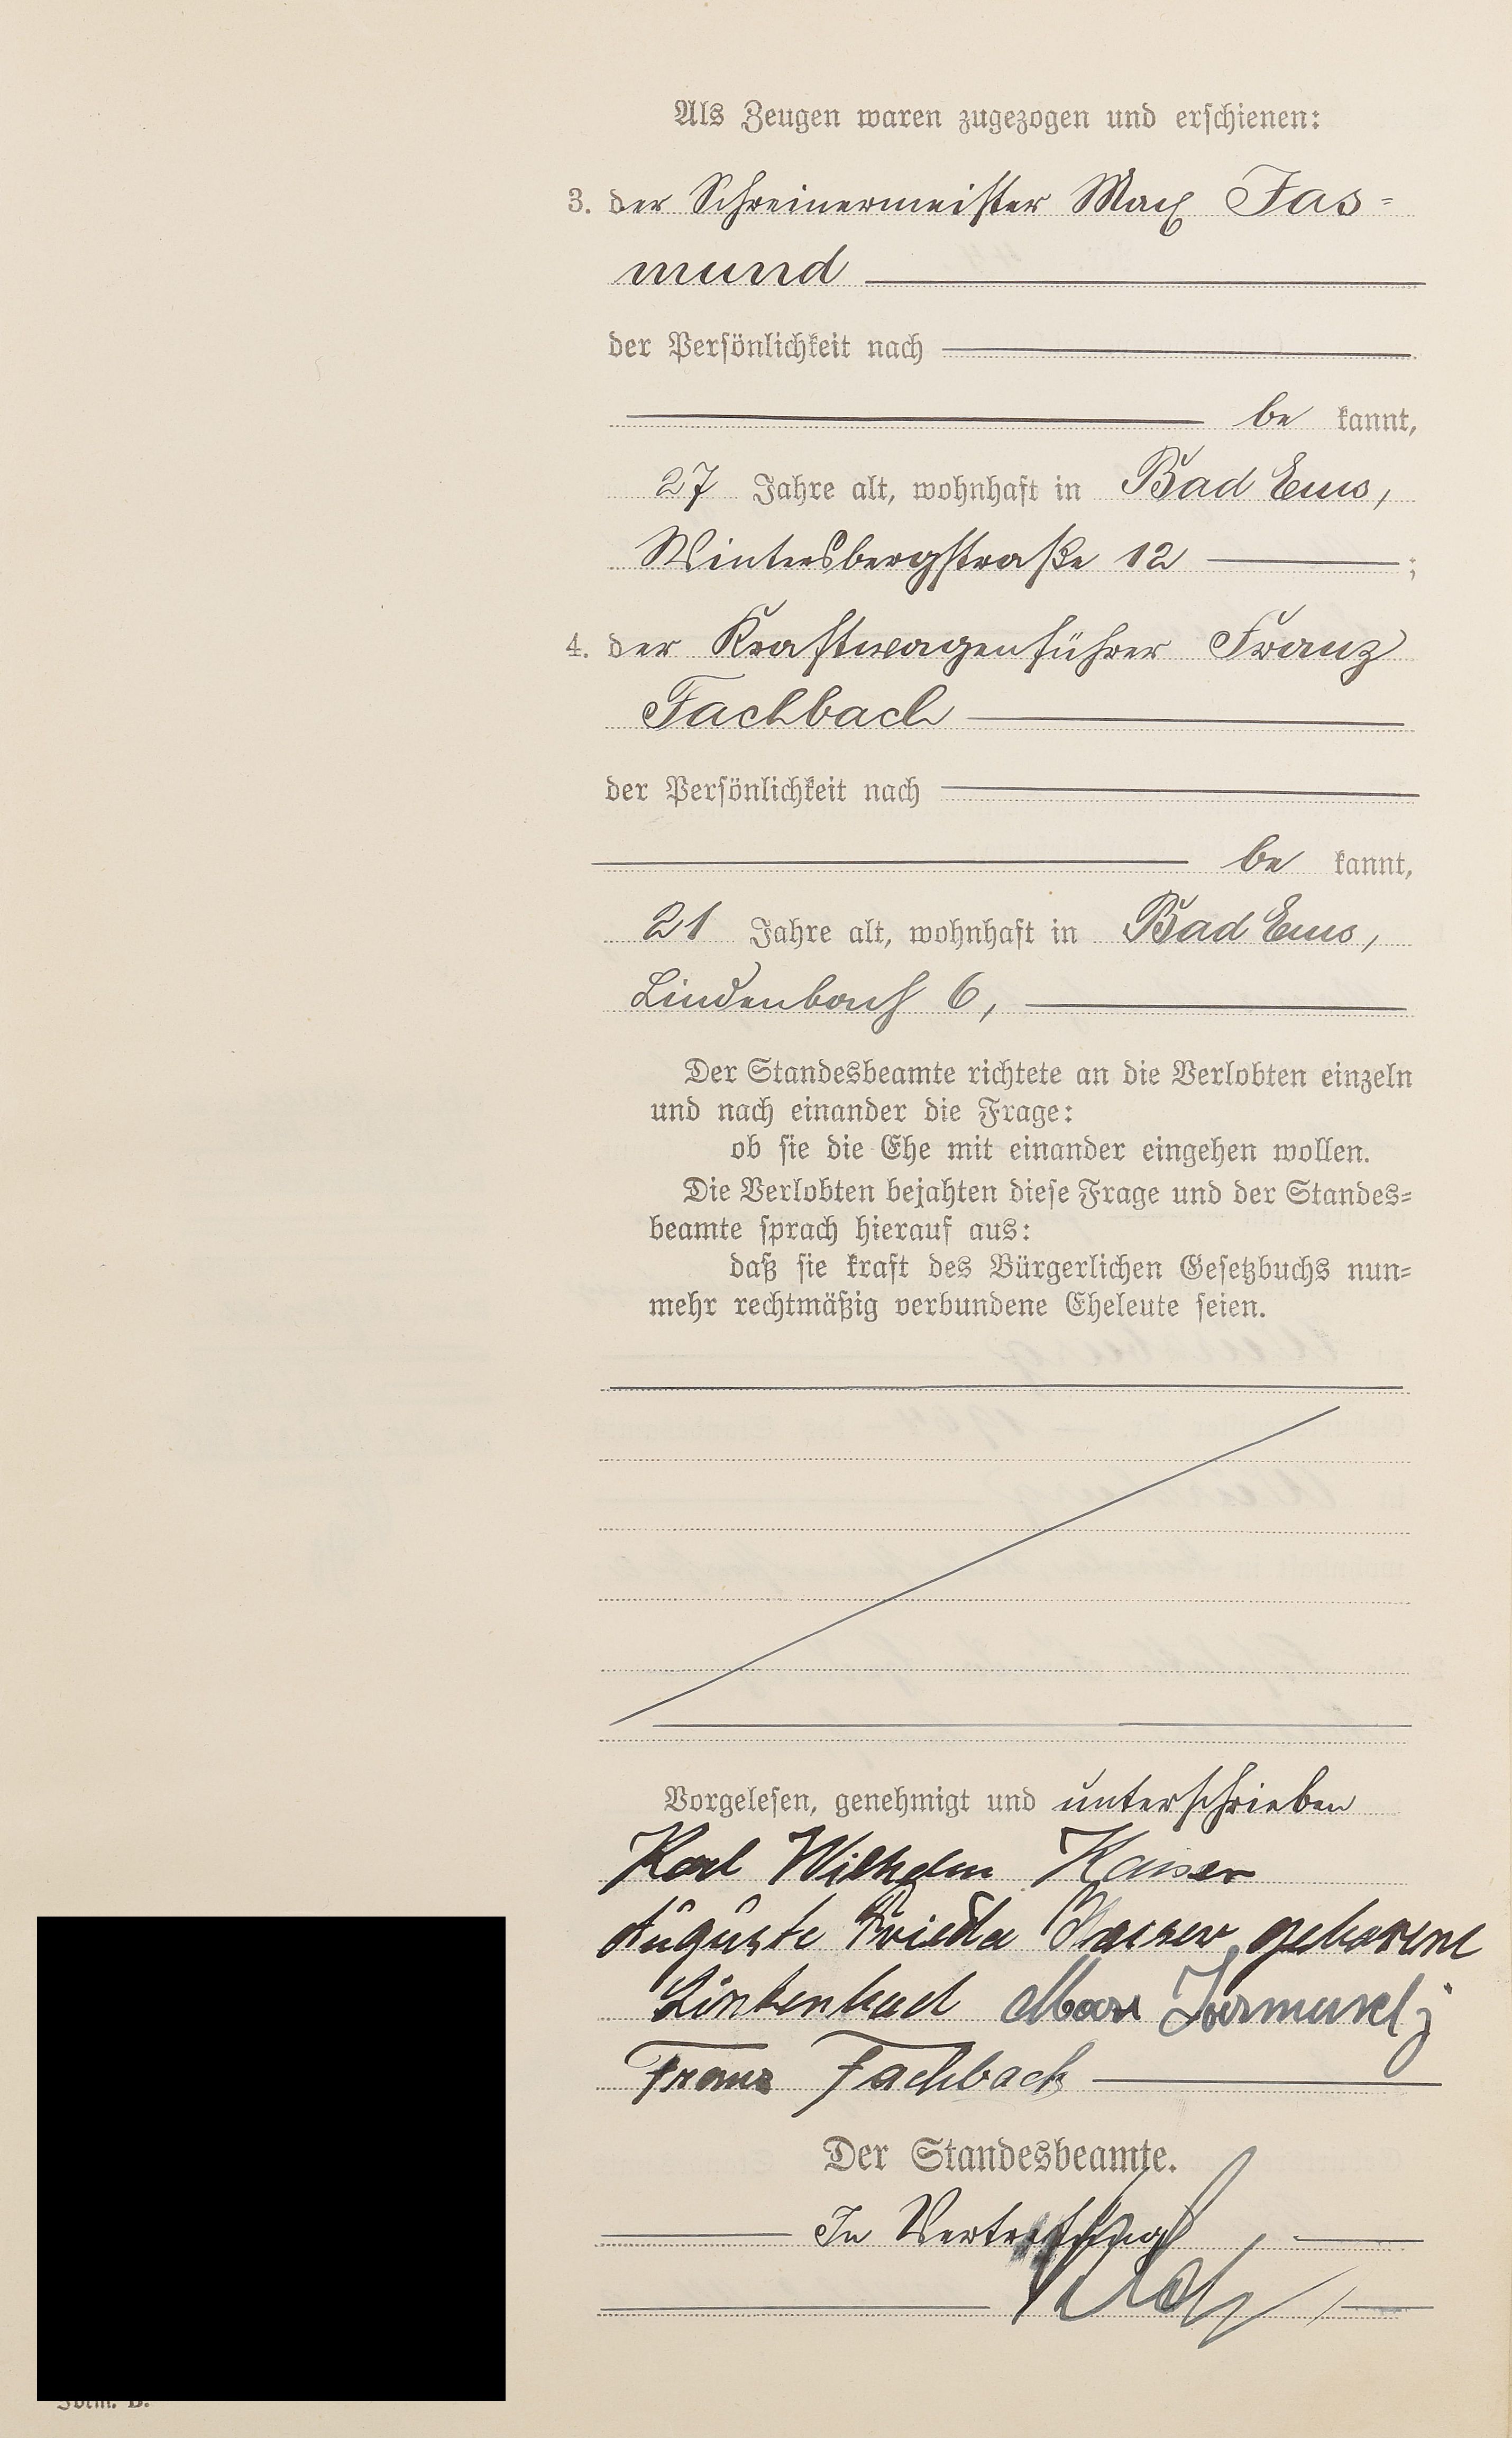 Als Zeugen waren zugezogen und erschienen:
3. der Schreinermeister Max Fas-
mund
der Persönlichkeit nach
be kannt,
27 Jahre alt, wohnhaft in Bad Ems,
Wintersbergstraße 12 ;
4. der Kraftwagenführer Franz
Fachbach
der Persönlichkeit nach
be kannt,
21 Jahre alt, wohnhaft in Bad Ems,
Lindenbach 6,
Der Standesbeamte richtete an die Verlobten einzeln
und nach einander die Frage:
ob sie die Ehe mit einander eingehen wollen.
Die Verlobten bejahten diese Frage und der Standes-
beamte sprach hierauf aus:
daß sie kraft des Bürgerlichen Gesetzbuchs nun-
mehr rechtmäßig verbundene Eheleute seien.
Vorgelesen, genehmigt und unterschrieben
Karl Wilhelm Kaiser
Auguste Frieda Kaiser geborene
Max
Franz Fachbach
Der Standesbeamte.
In Vertretung